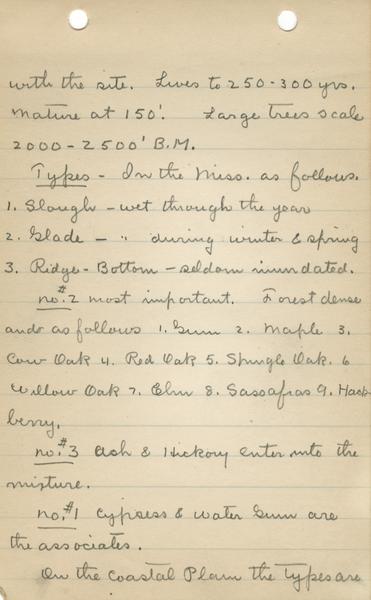 with the site. Lives to 250-300 yrs.
Mature at 150'. Large trees scale
2000-2500' B.M.
Types - In the Miss. as follows.
1. Slough - wet through the year
2. Glade - " during winter & spring
3. Ridge-Bottom - seldom inundated.
no.#2 most important. Forest dense
and as follows 1. Gum 2. Maple 3.
Cow Oak 4. Red Oak 5. Shingle Oak. 6
Willow Oak 7. Elm 8. Sassafras 9. Hack-
berry.
no.#3 Ash & Hickory enter into the
mixture.
no.#1 Cypress & Water Gum are
the associates.
On the Coastal Plain the types are